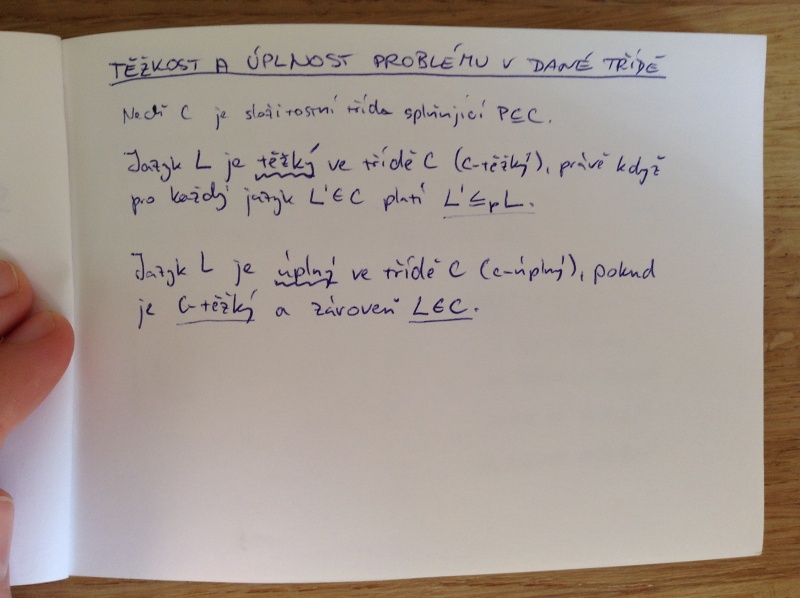 TĚŽKOST A ÚPLNOST PROBLÉMU V DANÉ TŘÍDĚ
Nechť C je složitostní třída splňující P⊆C.
Jazyk L je těžký ve třídě C (C-těžký), právě když
pro každý jazyk L'∈C platí L'≤pL.
Jazyk L je úplný ve třídě C (C-úplný), pokud
je C-těžký a zároveň L∈C.